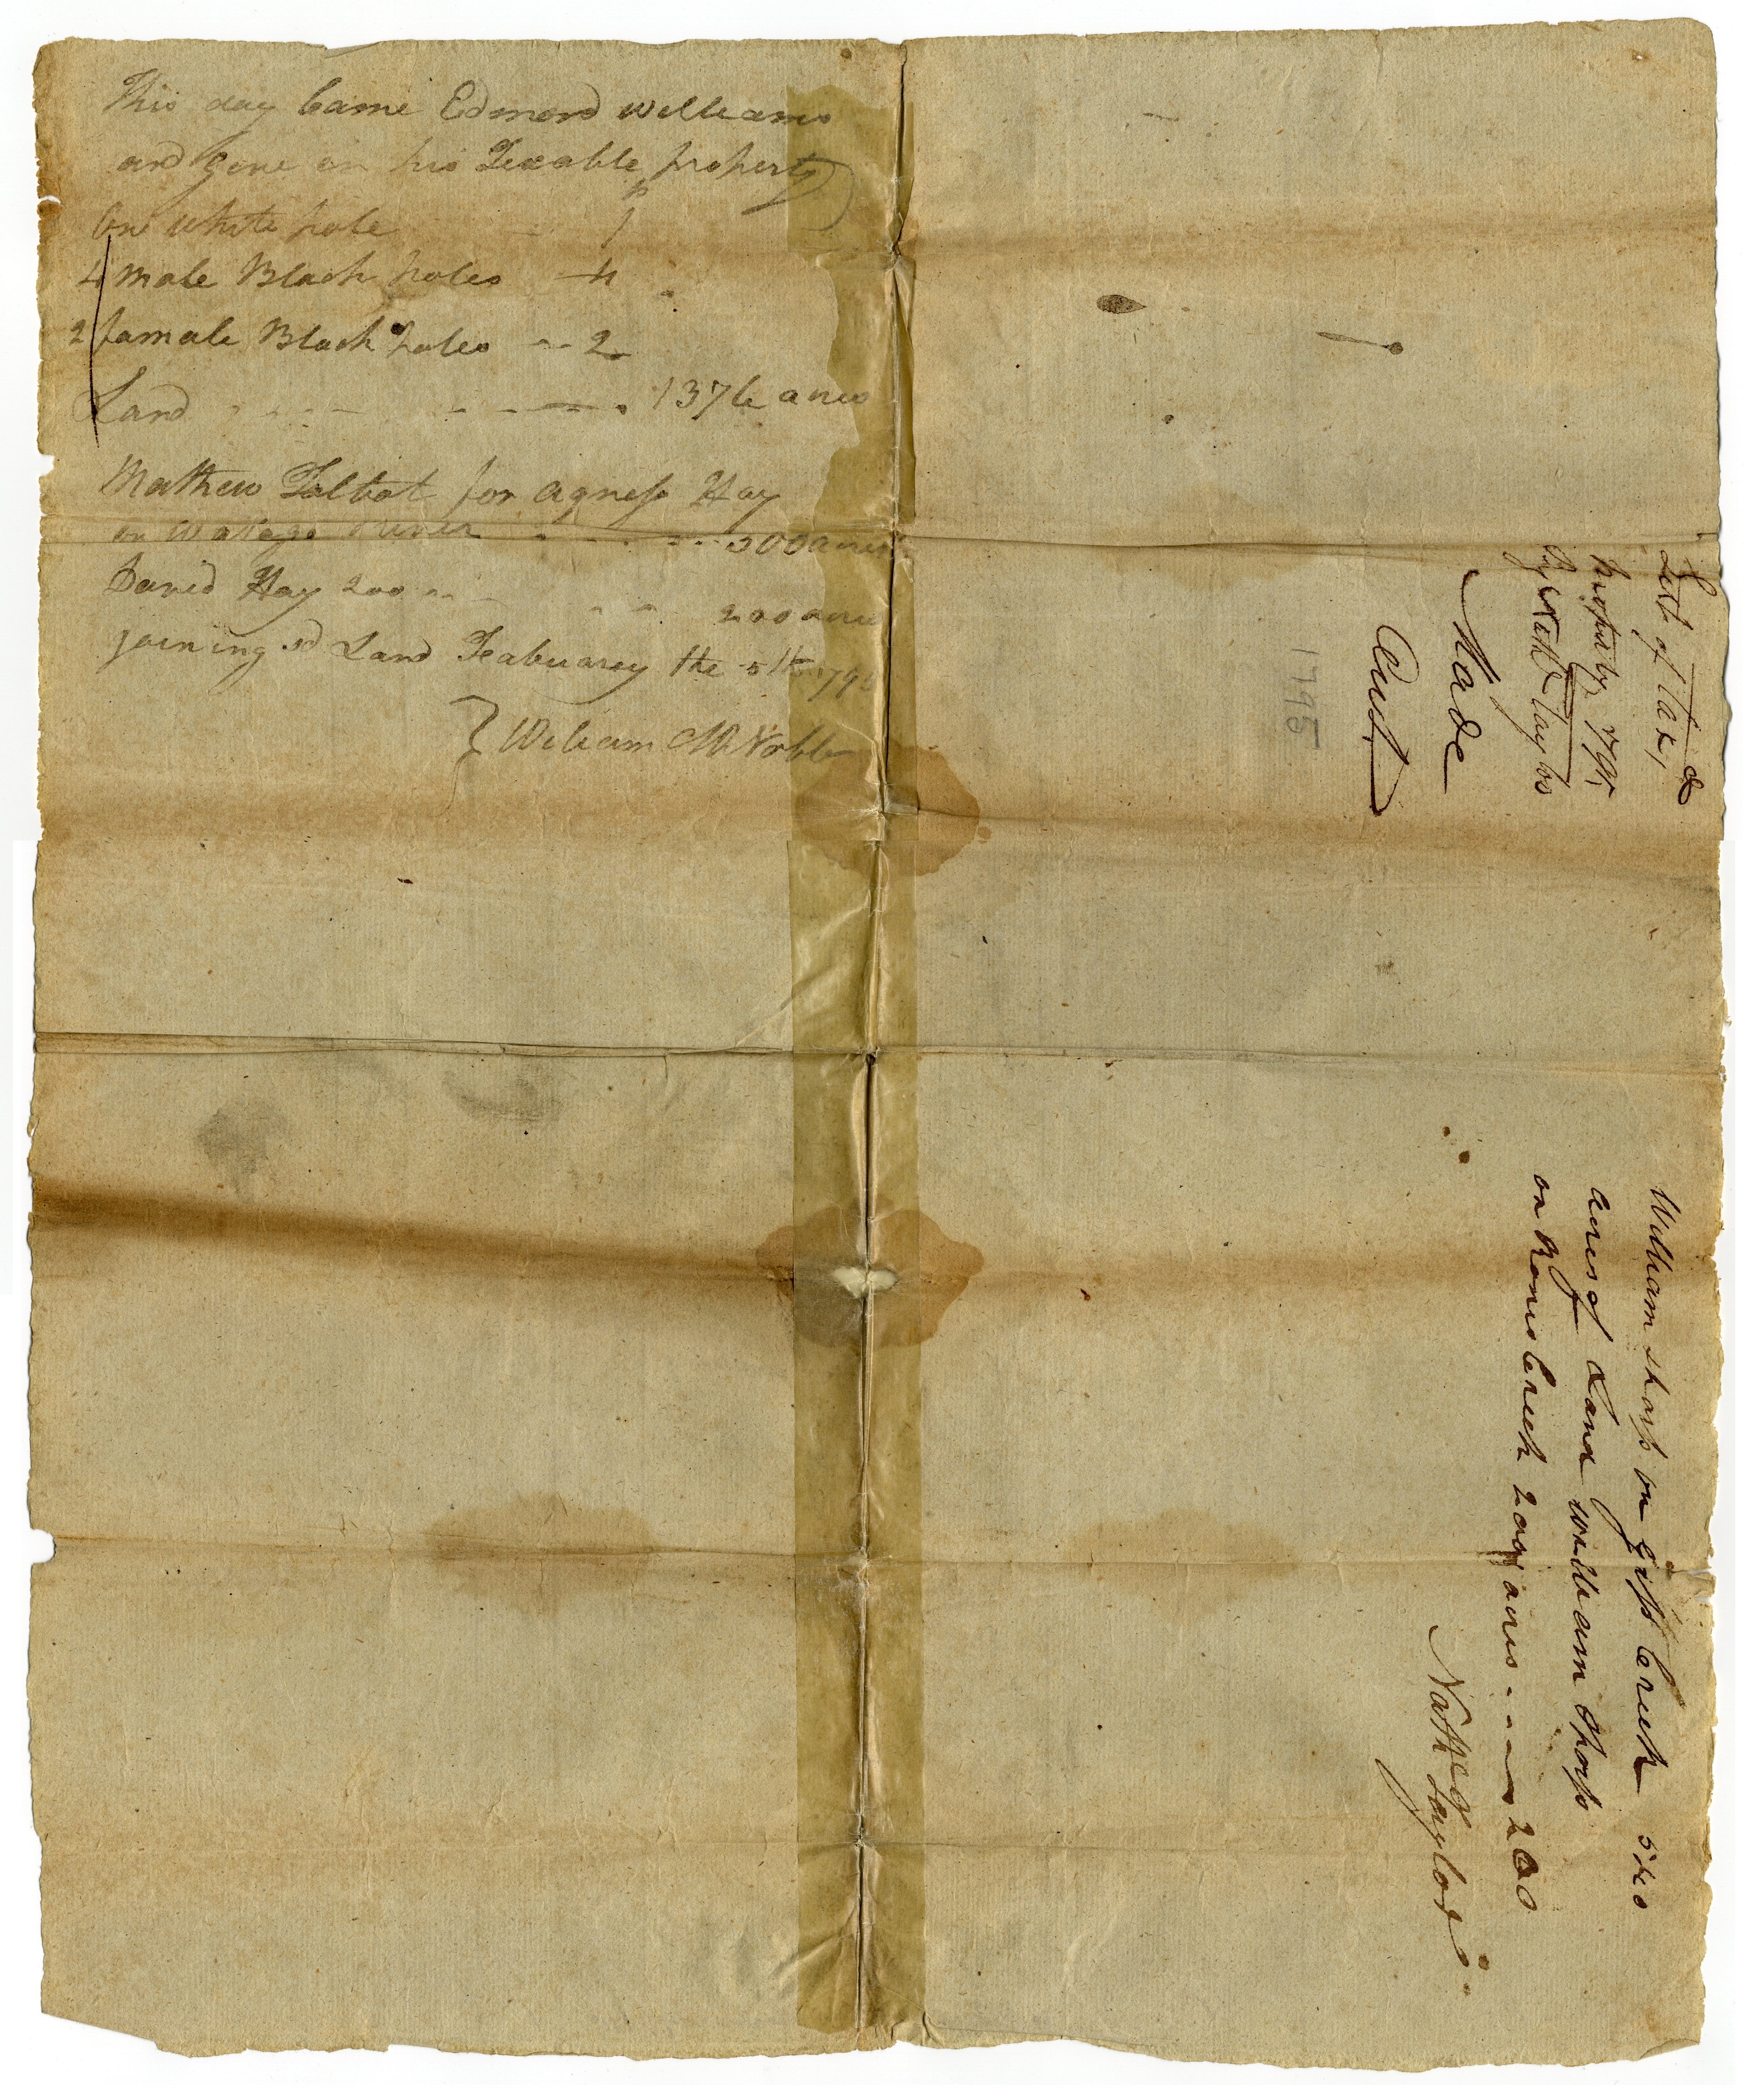 This day Came Edmond Williams
and gave in his Texable property
One White pole 1
4 male Black poles - 4
2 famale Black poles -- 2
Land 1376 acres
Mathew Talbot for Agness Hay
on Watago River 500 acres
David Hay 200 -- 200 acres
joining sd Land Feabuarey the 5th 179
William McNabb
List of Tax,
property 1795
by Nathl Taylor
Made
Out
1795
William sharp on gist Creek 540
acres of Land William Sharp
on Roans Creek 200 acres - - - - 200
Nathl Taylor